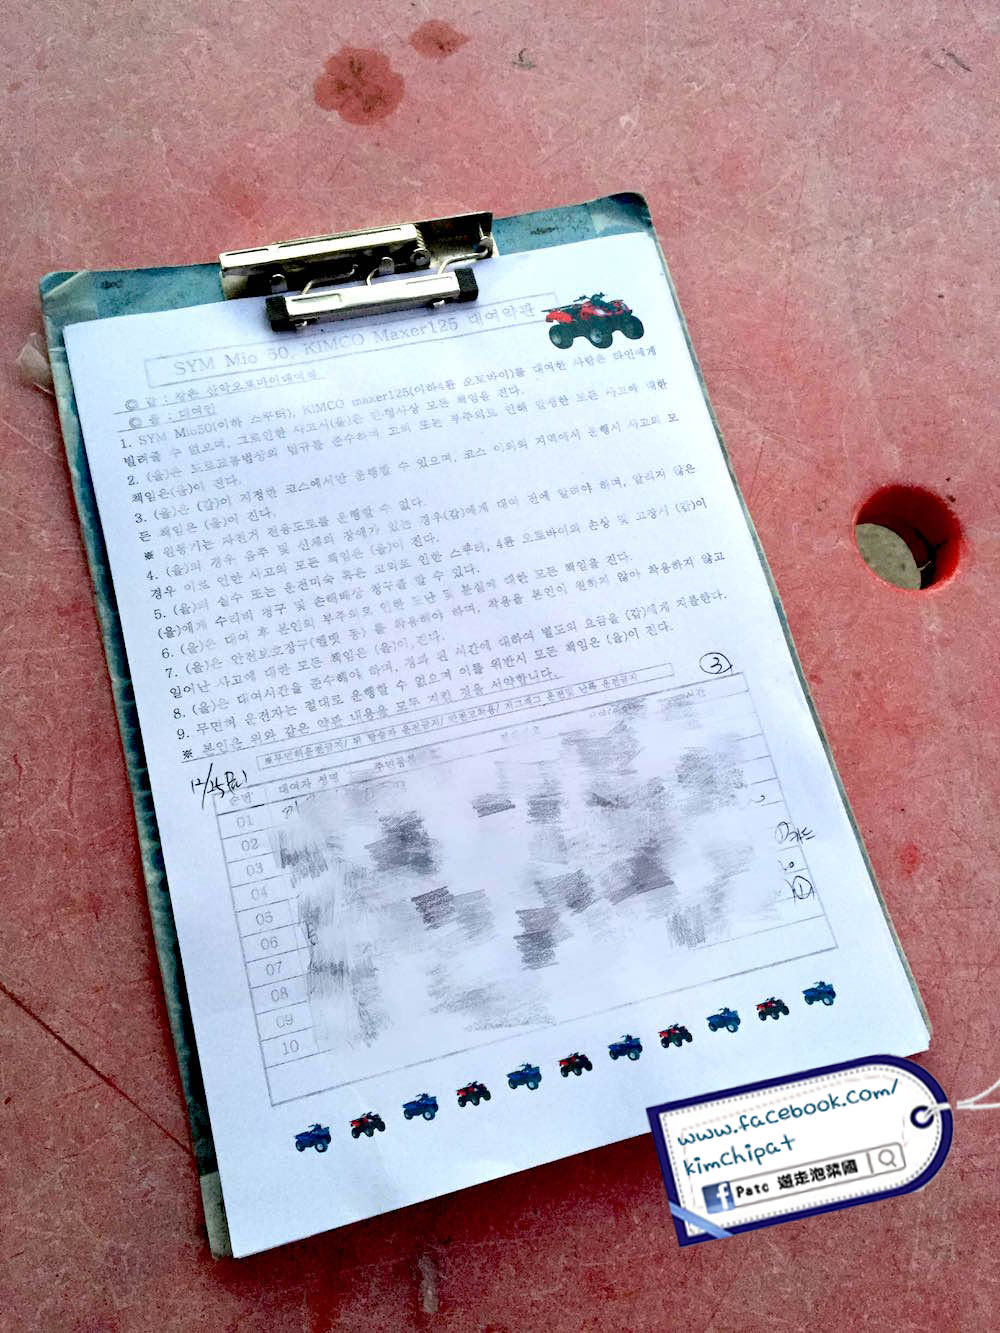 SYM Mio 50, KIMCO Maxer125 대여약관
◎ 갑 : 삼악오토바이대여점
◎ 을 : 대여인
1. SYM Mio50(이하 스쿠터), KIMCO maxer125(이하4륜 오토바이)를 대여한 사람은 타인에게
빌려줄 수 없으며, 그로인한 사고시(을)은 민·형사상 모든 책임을 진다.
2. (을)은 도로교통법상의 법규를 준수하며 고의 또는 부주의로 인해 발생한 모든 사고에 대한
책임은(을)이 진다.
3. (을)은 (갑)이 지정한 코스에서만 운행할 수 있으며, 코스 이외의 지역에서 운행시 사고의 모
든 책임은 (을)이 진다.
※ 원동기는 자전거 전용도로를 운행할 수 없다.
4. (을)의 경우 음주 및 신체의 장애가 있는 경우(갑)에게 대여 전에 알려야 하며, 알리지 않은
경우 이로 인한 사고의 모든 책임은 (을)이 진다.
5. (을)의 실수 또는 운전미숙 혹은 고의로 인한 스쿠터, 4륜 오토바이의 손상 및 고장시 (갑)이
(을)에게 수리비 청구 및 손해배상 청구를 할 수 있다.
6. (을)은 대여 후 본인의 부주의로 인한 도난 및 분실에 대한 모든 책임을 진다.
7. (을)은 안전보호장구(헬멧 등) 를 착용해야 하며, 착용을 본인이 원하지 않아 착용하지 않고
일어난 사고에 대한 모든 책임은 (을)이 진다.
8. (을)은 대여시간을 준수해야 하며, 경과 된 시간에 대하여 별도의 요금을 (갑)에게 지불한다.
9. 무면허 운전자는 절대로 운행할 수 없으며 이를 위반시 모든 책임은 (을)이 진다.
※ 본인은 위와 같은 약관 내용을 모두 지킬 것을 서약합니다.
③
※무면허운전금지/ 뒤 탑승자 운전금지/ 안전모착용/ 지그재그 운전및 난폭 운전금지
12/25
순번 대여자 성명
01
02
03
04
05
06
07
08
09
10
www.facebook.com/
kimchipat
f Patc 遊走泡菜國